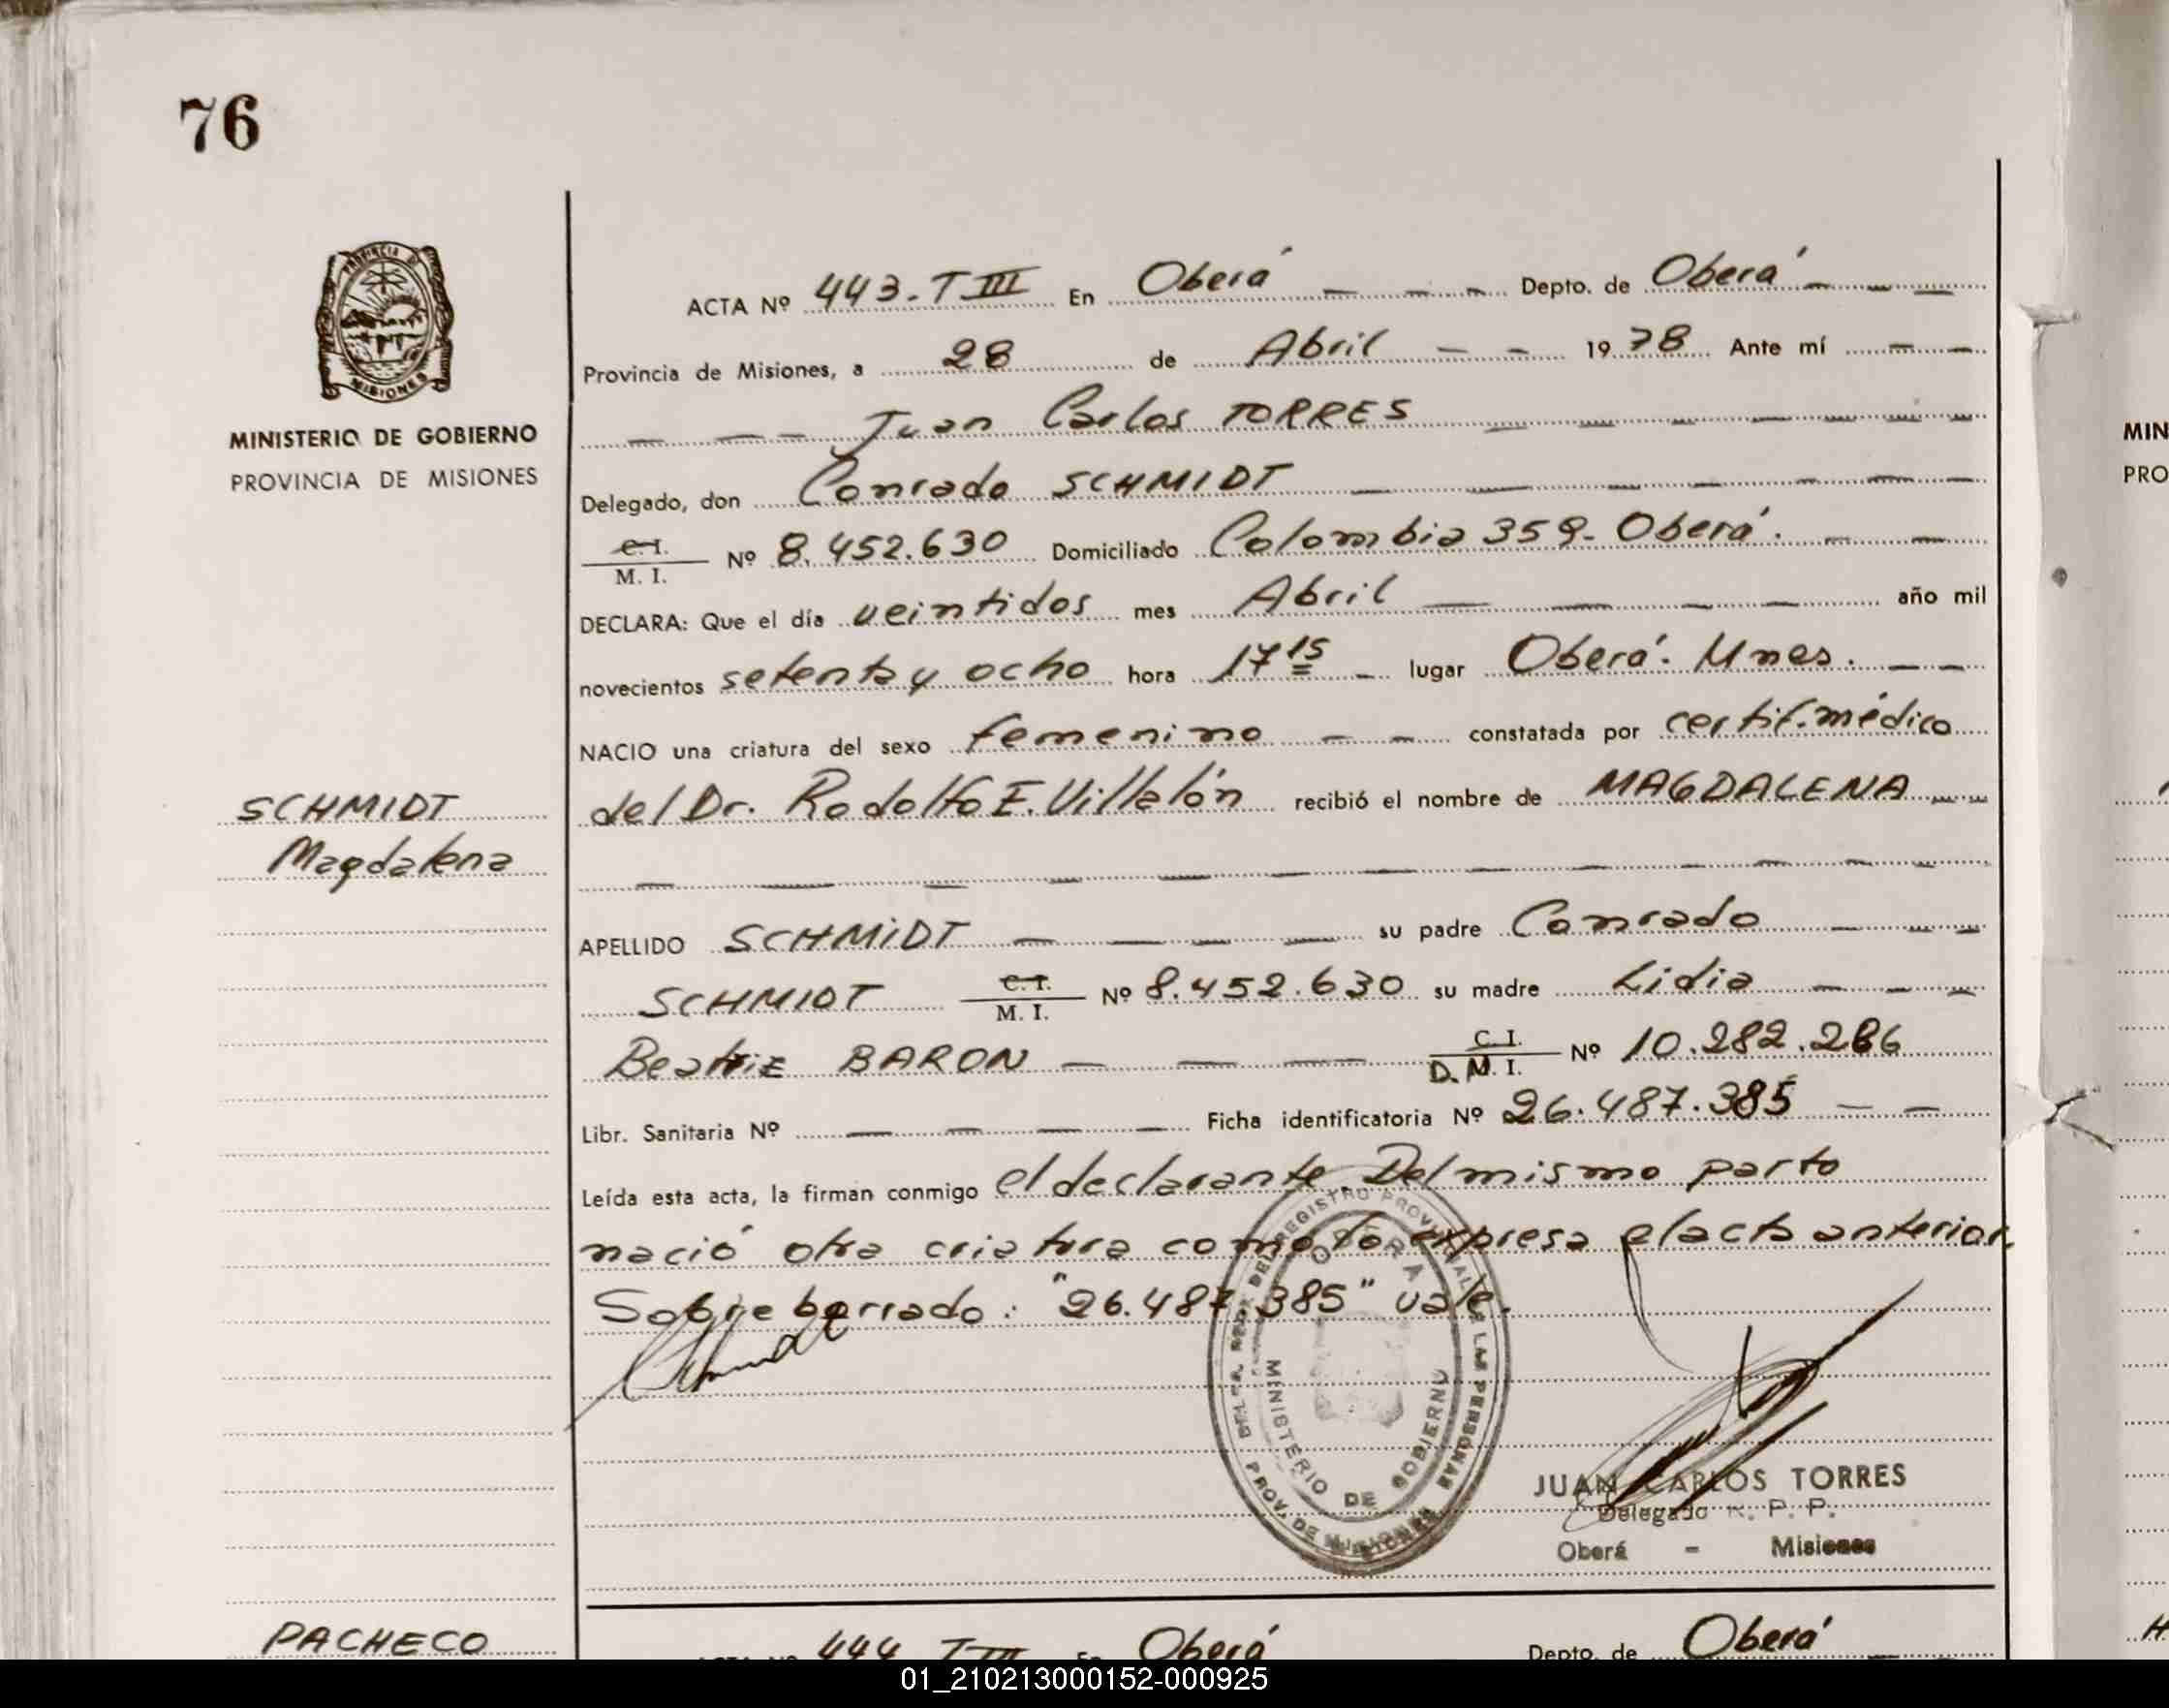 76
PROVINCIA DE
MISIONES
MINISTERIO DE GOBIERNO
PROVINCIA DE MISIONES
SCHMIDT
Magdalena
ACTA Nº 443. T III En Oberá — — — Depto. de Oberá — — —
Provincia de Misiones, a 28 de Abril — — 1978 Ante mí — —
— — — Juan Carlos TORRES — — — — — —
Delegado, don Conrado SCHMIDT — — — — — — —
C. I.
M. I. Nº 8.452.630 Domiciliado Colombia 359- Oberá. — —
DECLARA: Que el día veintidos mes Abril — — — — año mil
novecientos setenta y ocho hora 17 15 — lugar Oberá. Mnes. — —
NACIO una criatura del sexo femenino — — constatada por certif. médico
del Dr. Rodolfo E. Villalón recibió el nombre de MAGDALENA — —
— — — — — — — — — — — —
APELLIDO SCHMIDT — — — — su padre Conrado — — —
SCHMIDT C. I.
M. I. Nº 8.452.630 su madre Lidia — — —
Beatriz BARON — — — C. I.
D. M. I. Nº 10.282.286
Libr. Sanitaria Nº — — — — Ficha identificatoria Nº 26.487.385 — —
Leída esta acta, la firman conmigo el declarante. Del mismo parto
nació otra criatura como lo expresa el acta anterior.
Sobre borrado: "26.487.385" vale.
Schmidt
DEL REGISTRO PROVINCIAL DE LAS PERSONAS
MINISTERIO DE GOBIERNO
PROV. DE MISIONES
JUAN CARLOS TORRES
Delegado R. P. P.
Oberá - Misiones
PACHECO
ACTA Nº 444 T III En Oberá Depto. de Oberá —
MIN
PRO
01_210213000152-000925